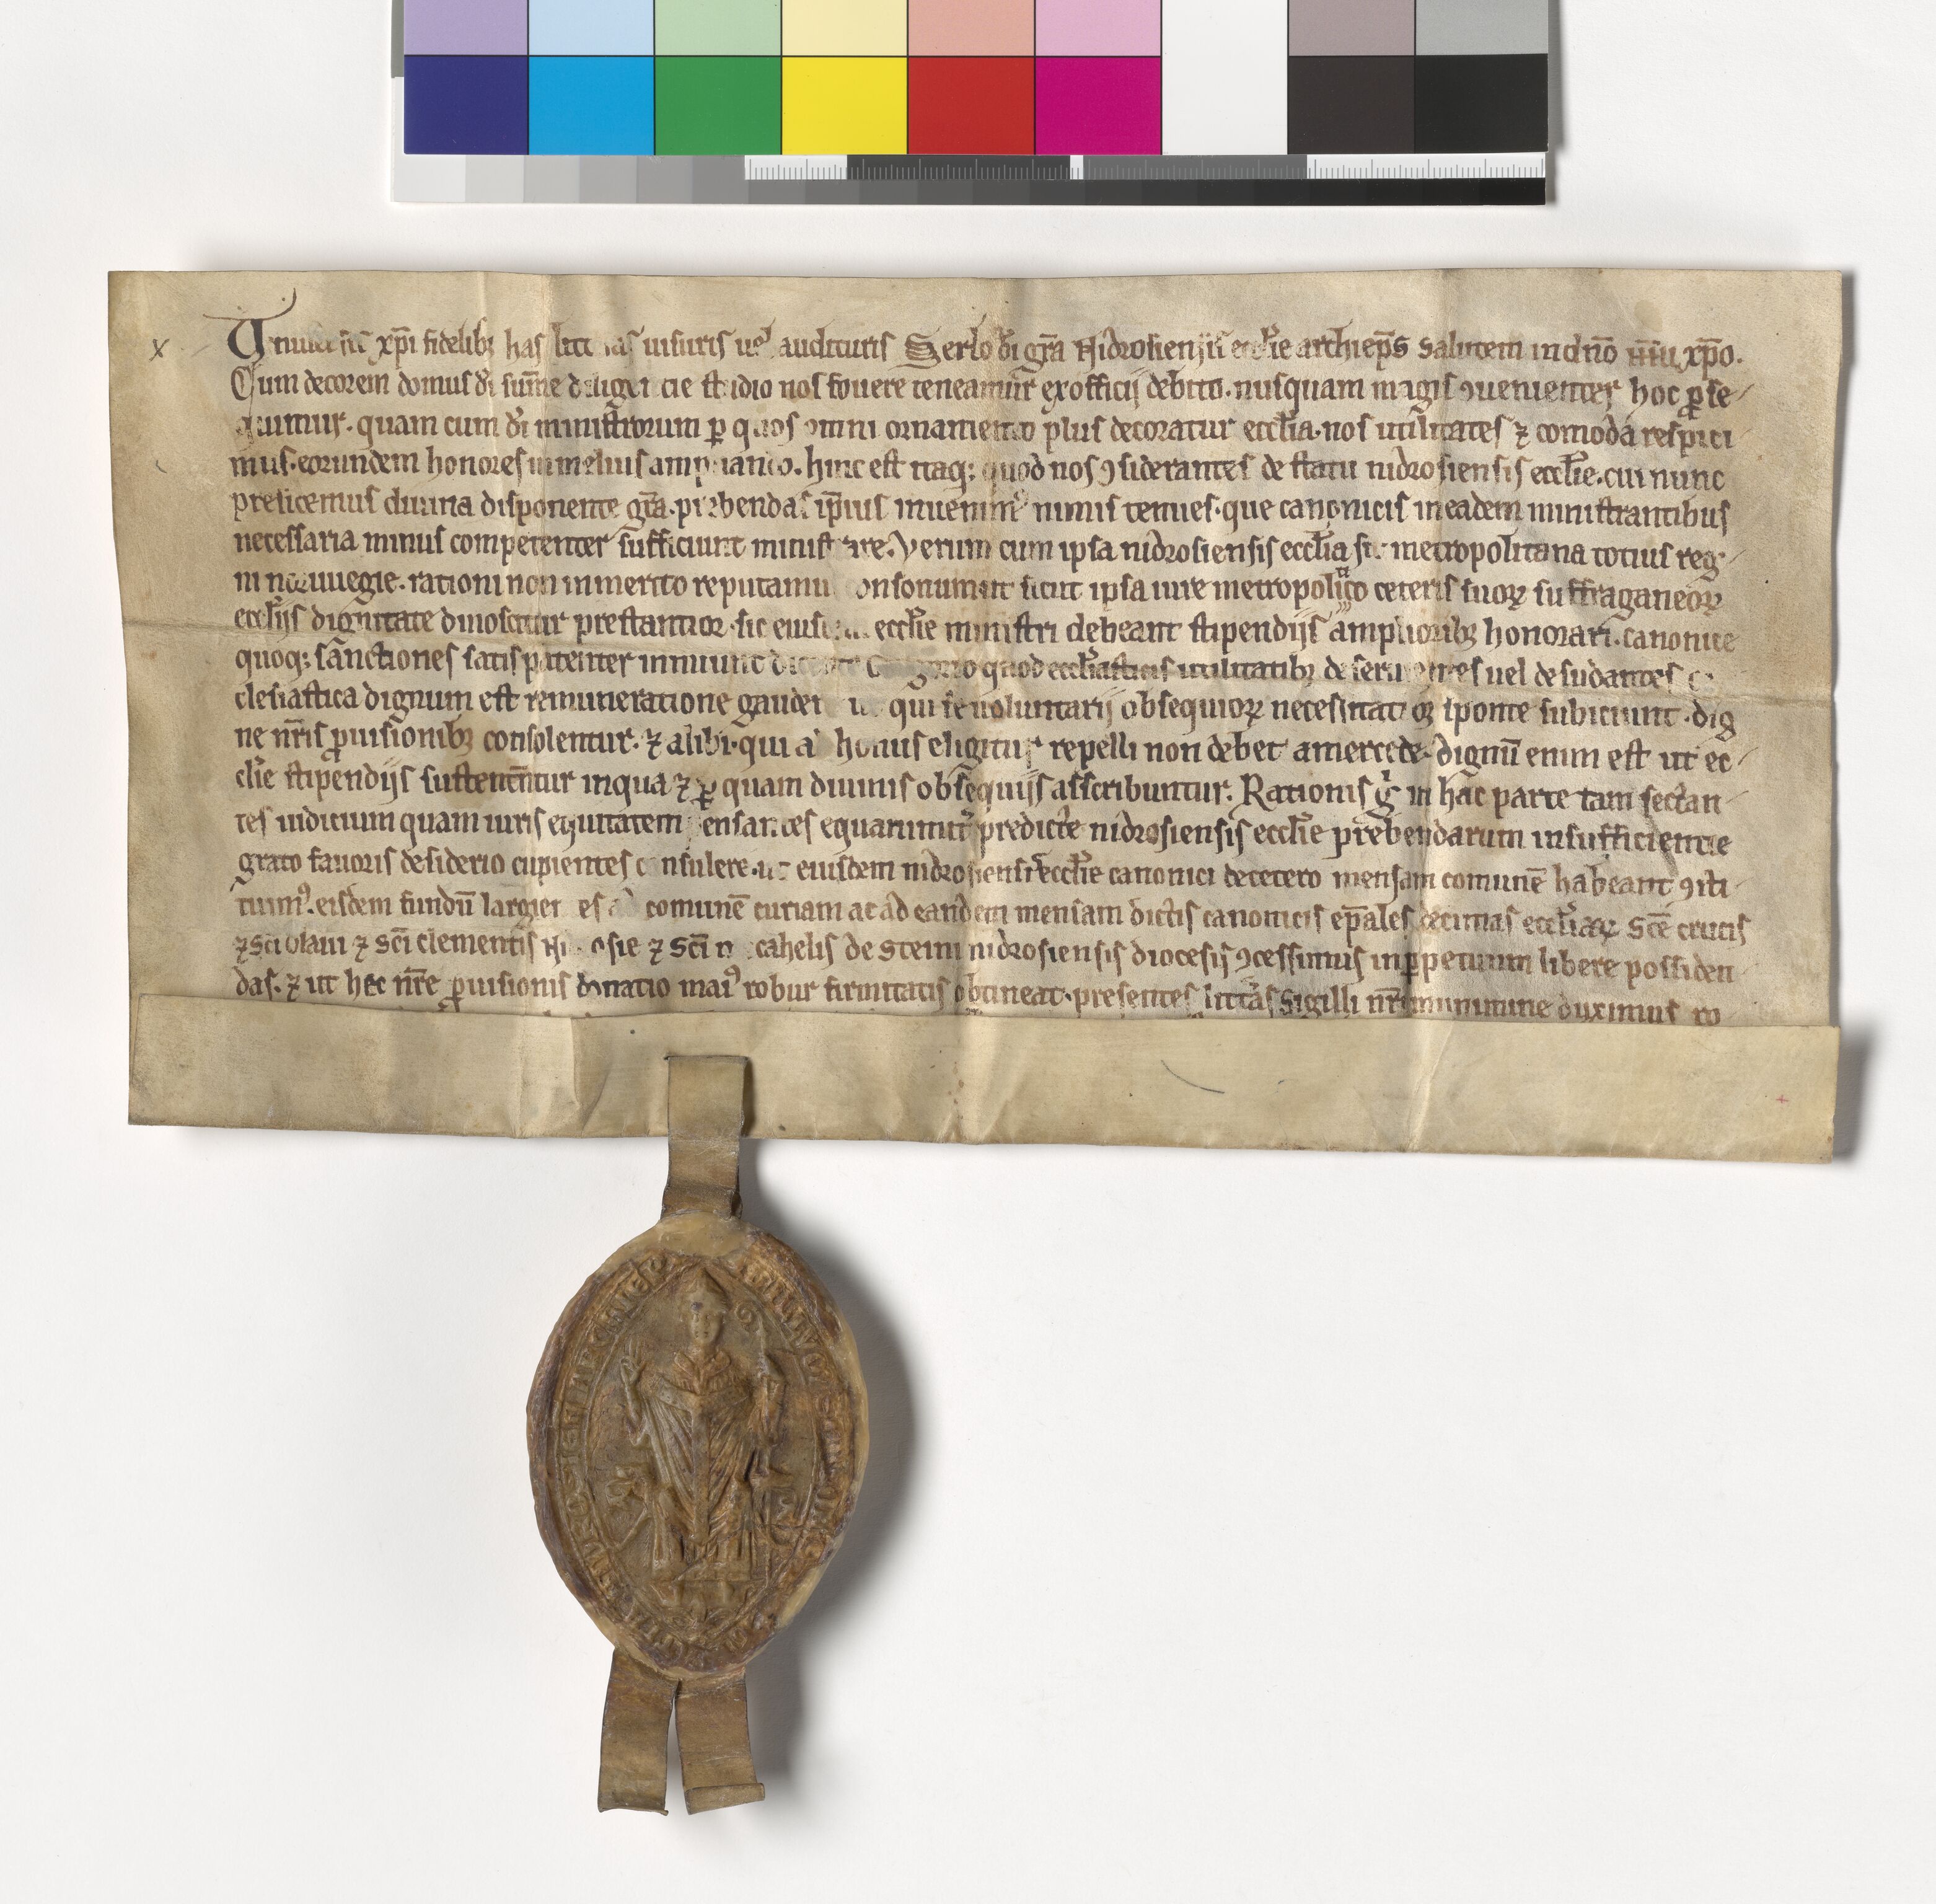 Uniuersis xp̄i fidelibꝫ has litteras uisuris uel audituris Serlo dī gr̄a Nidrosiensis eccl̄ie archiep̄s salutem in dn̄o ih̄u xp̄o.
Cum decorem domus dī sum̄e diligencie studio nos fouere teneamur ex officij debito. nusquam magis ꝯuenienter hoc ꝓse
quimur. quam cum dī ministrorum ꝑ quos omni ornamento plus decoratur eccl̄ia. nos utilitates ⁊ comoda respici
mus. eorundem honores in melius ampliando. hinc est itaqꝫ quod nos ꝯsiderantes de statu nidrosiensis eccl̄ie. cui nunc
presidemus diuina disponente gr̄a. prebendas ip̄ius inuenimꝰ nimis tenues. que canonicis in eadem ministrantibus
necessaria minus competenter sufficiunt ministrare. Verum cum ipsa nidrosiensis eccl̄ia sit metropolitana totius reg
ni noruuegie. rationi non inmerito reputamus consonum ut sicut ipsa iure metropolitico ceteris suoꝝ suffraganeoꝝ
eccl̄ijs dignitate dinoscitur prestantior. sic eiusdem eccl̄ie ministri debeant stipendijs amplioribꝫ honorari. canonice
quoqꝫ sanctiones satis patenter innuunt dicente Gregorio quod eccl̄iasticis utilitatibꝫ deseruientes uel desudantes ec
clesiastica dignum est remuneratione gaudere ut qui se uoluntarij obsequioꝝ necessitatibꝫ sponte subiciunt. dig
ne nr̄is ꝓuisionibꝫ consolentur. ⁊ alibi. qui ad honus eligitur repelli non debet a mercede. dignū enim est ut ec
cl̄ie stipendijs sustentētur in qua ⁊ ꝑ quam diuinis obsequijs asscribuntur. Rationis gͥ in hac parte tam sectan
tes iudicium quam iuris equitatem pensantes equanimiter predicte nidrosiensis eccl̄ie prebendarum insufficiencie
grato fauoris desiderio cupientes consulere. ut eiusdem nidrosiensis eccl̄ie canonici decetero mensam comunē habeant ꝯsti
tuimꝰ. eisdem fundū largientes ad comunē curiam ac ad eandem mensam dictis canonicis ep̄ales decimas eccl̄iaꝝ Sc̄e crucis
⁊ sc̄i Olaui ⁊ sc̄i clementis Nidrosie ⁊ sc̄i michahelis de steini nidrosiensis diocesis ꝯcessimus inꝑpetuum libere possiden
das. ⁊ ut hec nr̄e ꝓuisionis donatio maiꝰ robur firmitatis obtineat. presentes litteras sigilli nr̄i munimine duximus ro